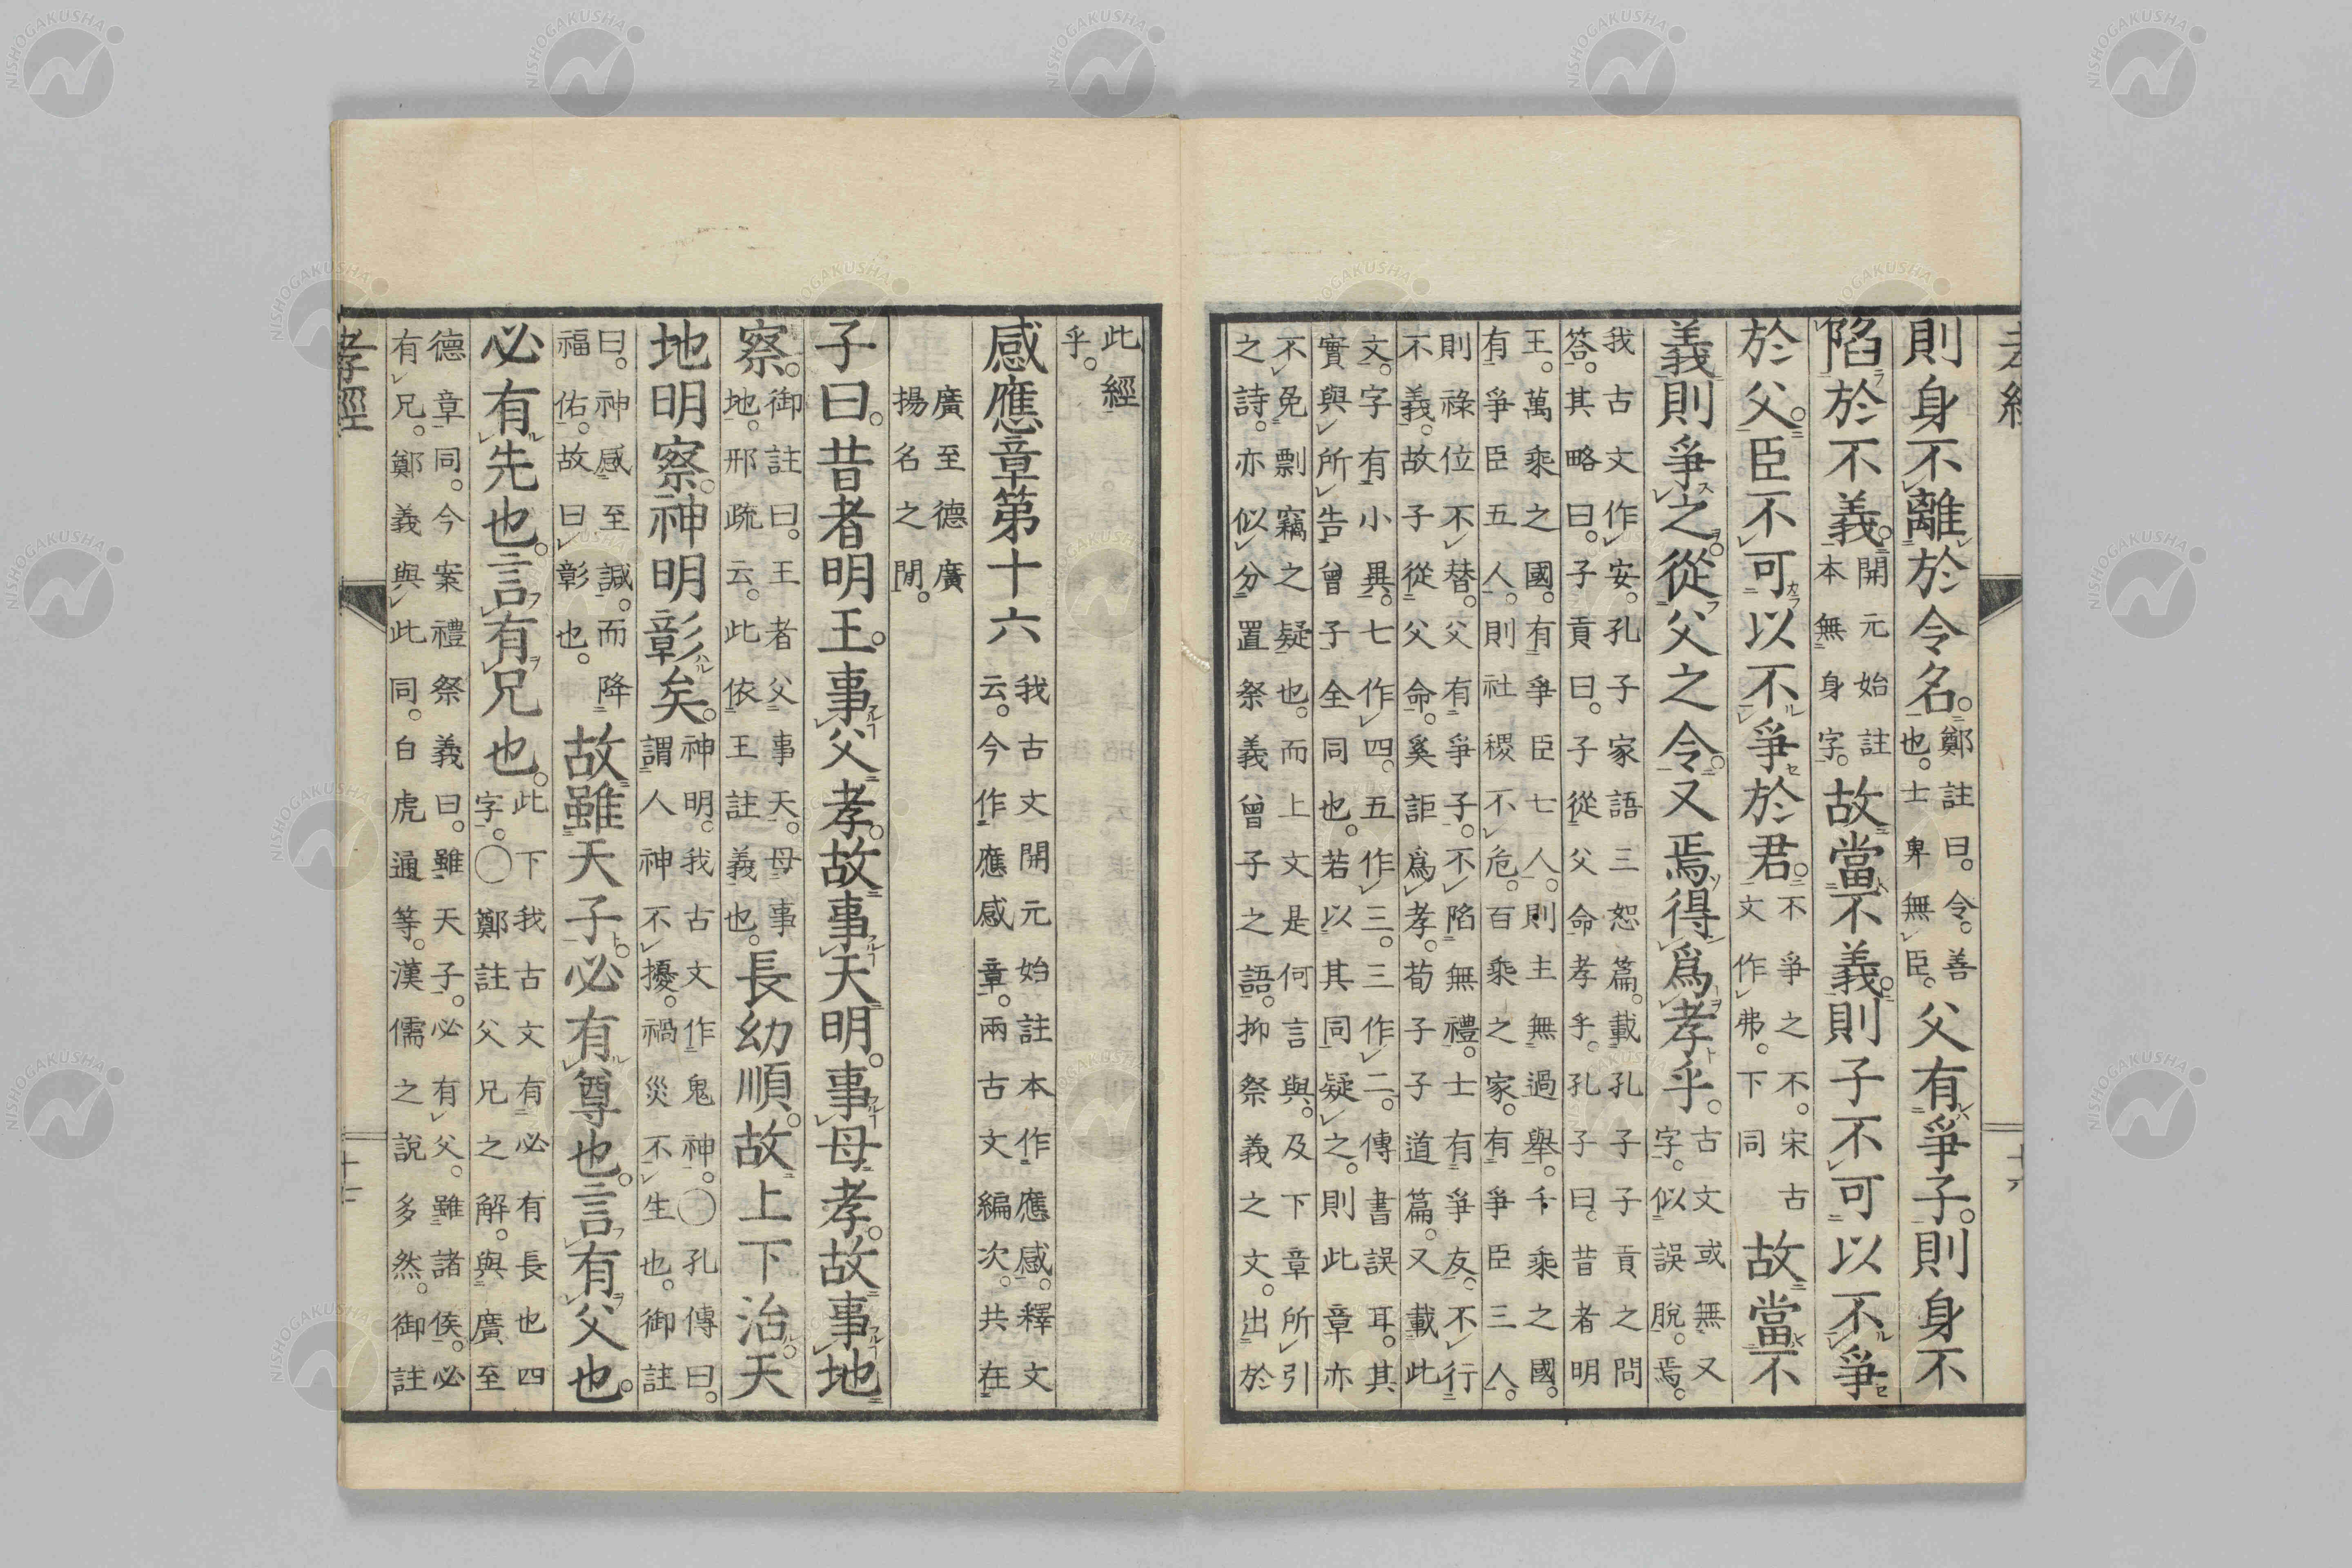 則身不離於令名。鄭註曰。令。善也。士卑無臣。父有爭子。則身不
陷於不義。開元始註本無身字。故當不義。則子不可以不爭
於父。臣不可以不爭於君。不爭之不。宋古文作弗。下同故當不
義則爭之。從父之令。又焉得爲孝乎。古文或無又字。似誤脫。焉。
我古文作安。孔子家語三恕篇。載孔子子貢之問
答。其略曰。子貢曰。子從父命孝乎。孔子曰。昔者明
王。萬乘之國。有爭臣七人。則主無過舉。千乘之國。
有爭臣五人。則社稷不危。百乘之家。有爭臣三人。
則祿位不替。父有爭子。不陷無禮。士有爭友。不行
不義。故子從父命。奚詎爲孝。荀子子道篇。又載此
文。字有小異。七作四。五作三。三作二。傳書誤耳。其
實與所告曾子全同也。若以其同疑之。則此章亦
不免剽竊之疑也。而上文是何言與。及下章所引
之詩。亦似分置祭義曾子之語。抑祭義之文。出於
此經
乎。
感應章第十六我古文開元始註本作應感。釋文云。今作應感章。兩古文編次。共在
廣至德廣
揚名之閒。
子曰。昔者明王。事父孝。故事天明。事母孝。故事地
察。御註曰。王者父事天。母事地。邢疏云。此依王註義也。長幼順。故上下治。天
地明察。神明彰矣。神明。我古文作鬼神。〇孔傳曰。謂人神不擾。禍災不生也。御註
曰。神感至諴。而降福佑。故曰彰也。故雖天子。必有尊也。言有父也。
必有先也。言有兄也。此下我古文有必有長也四字。〇鄭註父兄之解。與廣至
德章同。今案禮祭義曰。雖天子。必有父。雖諸侯。必
有兄。鄭義與此同。白虎通等。漢儒之說多然。御註
孝經
NISHOGAKUSHA